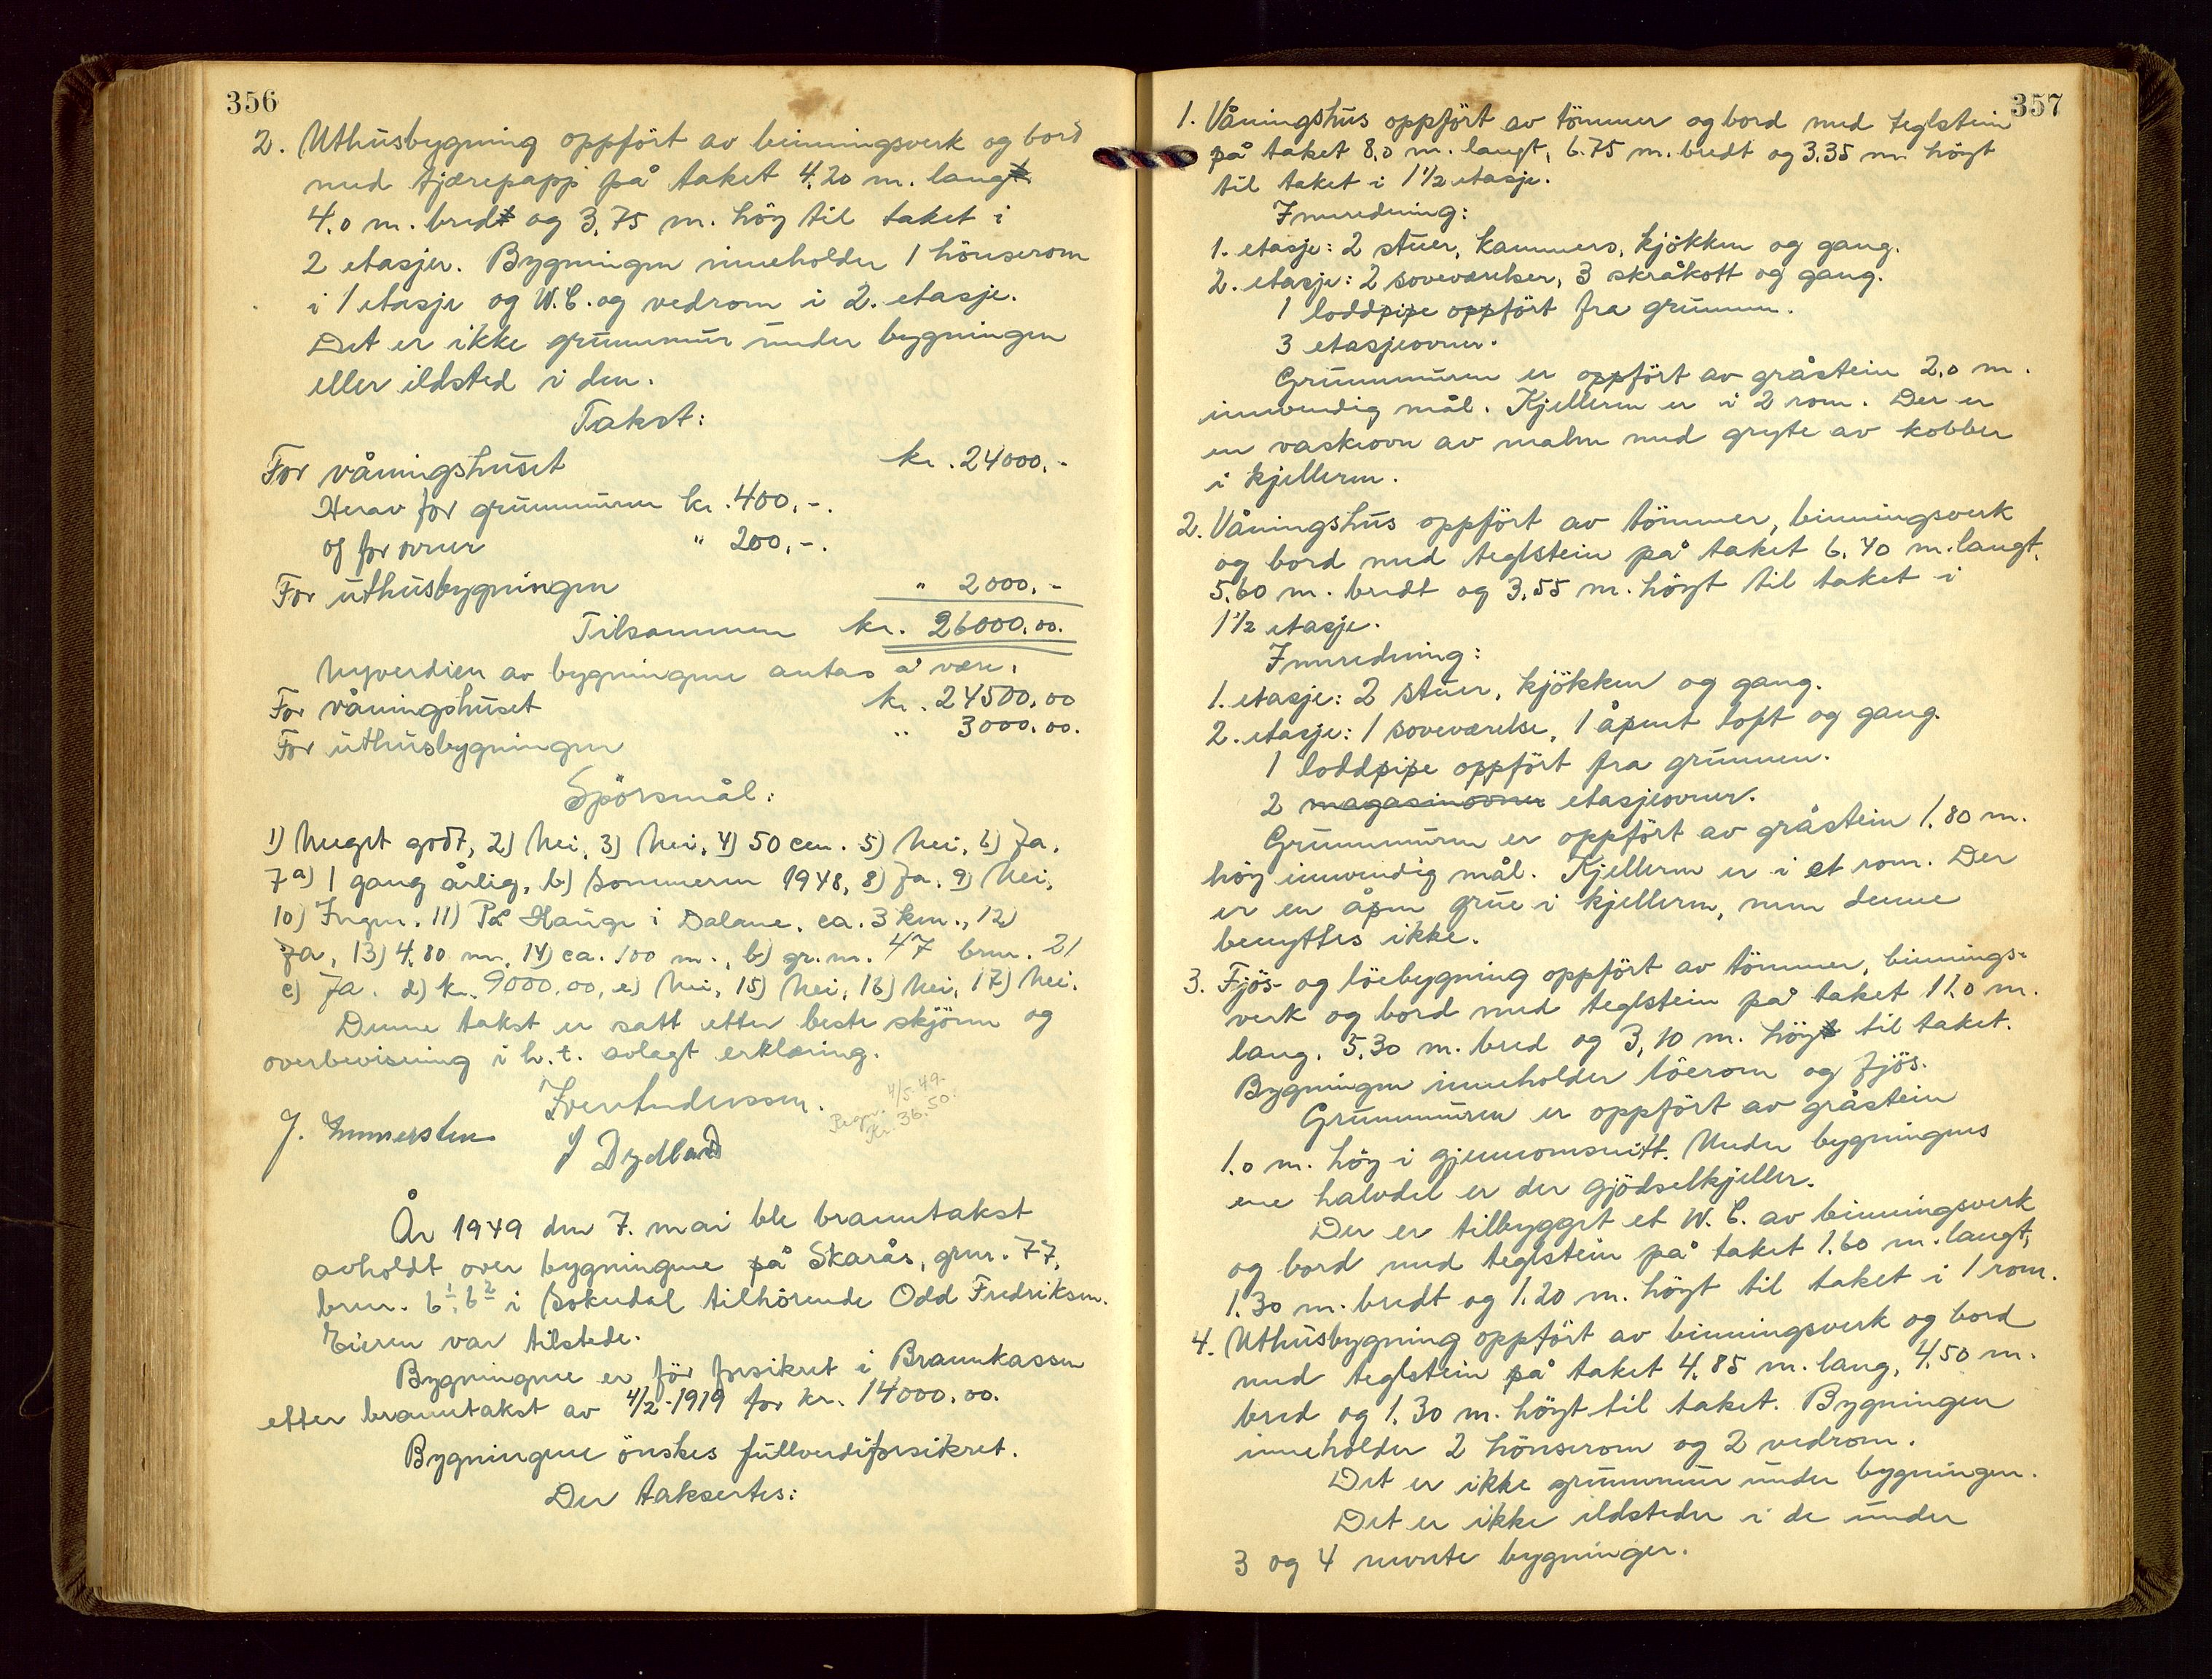 356
2. Uthusbygning oppført av binningsverk og bord
med tjærepapp på taket 4,20 m. lang
4,0 m. bred og 3,75 m. høy til taket i
2 etasjer. Bygningen inneholder 1 hönserom
i 1 etasje og W.C. og vedrom i 2. etasje.
Det er ikke grunnmur under bygningen
eller ildsted i den.
Takst:
For våningshuset kr. 24000.-
Herav for grunnmuren kr. 400.-.
og for ovner " 200.-.
For uthusbygningen " 2000.-
Tilsammen kr. 26000.00.
Nyverdien av bygningene antas å være:
For våningshuset kr. 24500.00
For uthusbygningen " 3000.00.
Spörsmål:
1) Meget godt, 2) Nei, 3) Nei, 4) 50 cm. 5) Nei, 6) Ja.
7a) 1 gang årlig, b) Sommeren 1948, 8) Ja. 9) Nei,
10) Ingen. 11) På Hauge i Dalane, ca. 3 km., 12)
Ja, 13) 4,80 m. 14) ca. 100 m., b) gr.nr. 47 brnr. 21
c) Ja. d) kr. 9000,00, e) Nei, 15) Nei, 16) Nei, 17) Nei.
Denne takst er satt etter beste skjönn og
overbevisning i h.t. avlagt erklæring.
Iver Anderssen.
Begn. 4/5.49.
Kr. 36.50.
J. Immerstein
J Dydland
År 1949 den 7. mai ble branntakst
avholdt over bygningene på Skarås, grnr. 77,
brnr. 6¹, 6² i Sokndal tilhörende Odd Fredriksen.
Eieren var tilstede.
Bygningene er för forsikret i Brannkassen
etter branntakst av 4/2-1919 for kr. 14000.00.
Bygningene önskes fullverdiforsikret.
Der taksertes:
357
1. Våningshus oppfört av tömmer og bord med teglstein
på taket 8,0 m. langt, 6.75 m. bredt og 3,35 m. höyt
til taket i 1 1/2 etasje.
Innredning:
1. etasje: 2 stuer, kammers, kjökken og gang.
2. etasje: 2 soveværelser, 3 skråkott og gang.
1 loddpipe oppfört fra grunnen.
3 etasjeovner.
Grunnmuren er oppfört av gråstein 2,0 m.
innvendig mål. Kjelleren er i 2 rom. Der er
en vaskeovn av malm med gryte av kobber
i kjelleren.
2. Våningshus oppfört av tömmer, binningsverk
og bord med teglstein på taket 6,40 m. langt,
5,60 m. bredt og 3,55 m. höyt til taket i
1 1/2 etasje.
Innredning:
1. etasje: 2 stuer, kjökken og gang.
2. etasje: 1 soveværelse, 1 åpent loft og gang.
1 loddpipe oppfört fra grunnen.
2 magasinovner etasjeovner.
Grunnmuren er oppfört av gråstein 1,80 m.
höy innvendig mål. Kjelleren er i et rom. Der
er en åpen grue i kjelleren, men denne
benyttes ikke.
3. Fjös- og löebygning oppfört av tömmer, binnings-
verk og bord med teglstein på taket 11,0 m.
lang, 5,30 m. bred og 3,10 m. höy til taket.
Bygningen inneholder löerom og fjös.
Grunnmuren er oppfört av gråstein
1,0 m. höy i gjennomsnitt. Under bygningens
ene halvdel er der gjödselkjeller.
Der er tilbygget et W.C. av binningsverk
og bord med teglstein på taket 1,60 m. langt,
1,30 m. bredt og 1,20 m. höyt til taket i 1 rom.
4. Uthusbygning oppfört av binningsverk og bord
med teglstein på taket 4,85 m. lang, 4,50 m.
bred og 1,30 m. höyt til taket. Bygningen
inneholder 2 hönserom og 2 vedrom.
Det er ikke grunnmur under bygningen.
Det er ikke ildsteder i de under
3 og 4 nevnte bygninger.